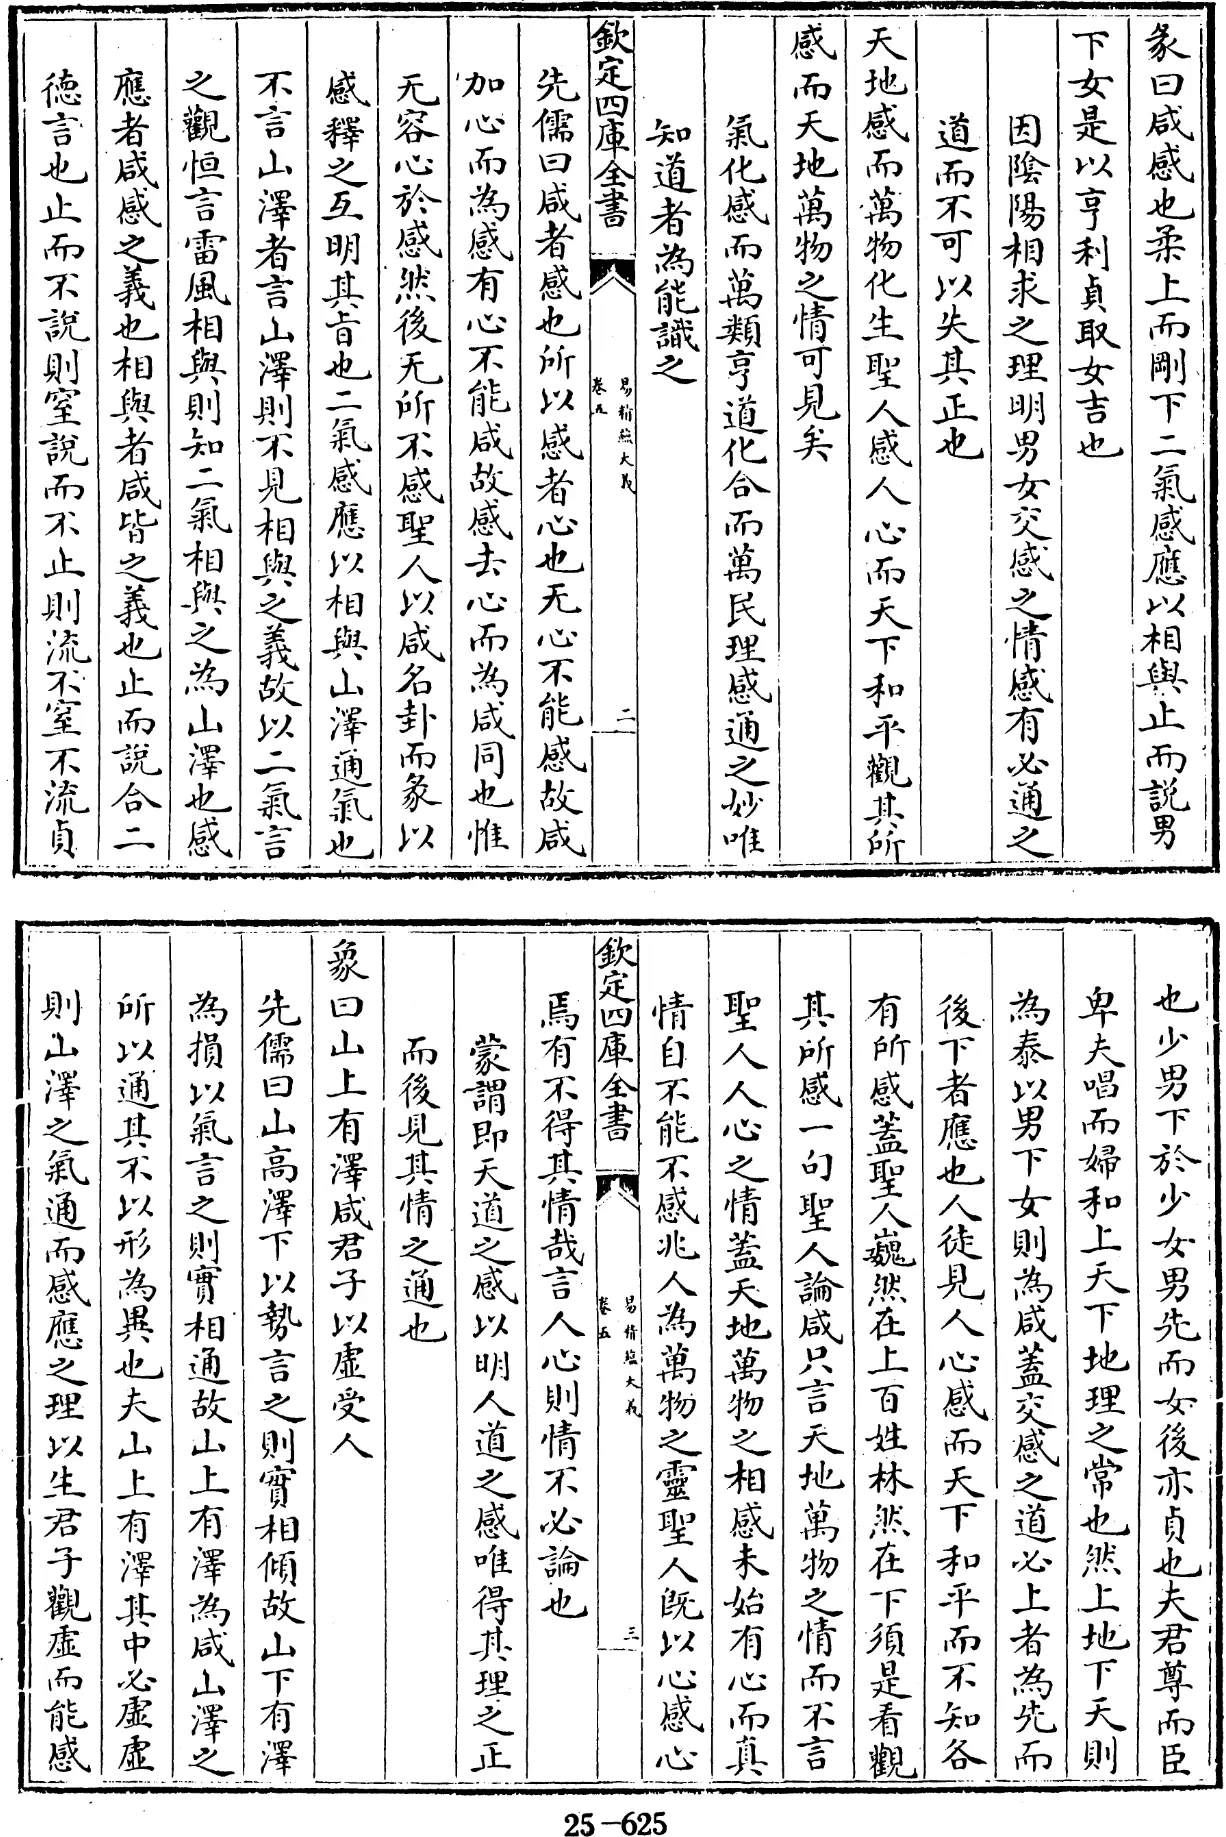 彖曰咸感也柔上而剛下二氣感應以相與止而說男
下女是以亨利貞取女吉也
因陰陽相求之理明男女交感之情感有必通之
道而不可以失其正也
天地感而萬物化生聖人感人心而天下和平觀其所
感而天地萬物之情可見矣
氣化感而萬類亨道化合而萬民理感通之妙唯
知道者為能識之
欽定四庫全書
易精蘊大義
卷五
二
先儒曰咸者感也所以感者心也无心不能感故咸
加心而為感有心不能咸故感去心而為咸同也惟
无容心於感然後无所不感聖人以咸名卦而彖以
感釋之互明其旨也二氣感應以相與山澤通氣也
不言山澤者言山澤則不見相與之義故以二氣言
之觀恒言雷風相與則知二氣相與之為山澤也感
應者咸感之義也相與者咸皆之義也止而說合二
德言也止而不說則窒說而不止則流不窒不流貞
也少男下於少女男先而女後亦貞也夫君尊而臣
卑夫唱而婦和上天下地理之常也然上地下天則
為泰以男下女則為咸蓋交感之道必上者為先而
後下者應也人徒見人心感而天下和平而不知各
有所感蓋聖人巍然在上百姓林然在下須是看觀
其所感一句聖人論咸只言天地萬物之情而不言
聖人人心之情蓋天地萬物之相感未始有心而真
情自不能不感兆人為萬物之靈聖人既以心感心
欽定四庫全書
易精蘊大義
卷五
三
焉有不得其情哉言人心則情不必論也
蒙謂即天道之感以明人道之感唯得其理之正
而後見其情之通也
象曰山上有澤咸君子以虛受人
先儒曰山高澤下以勢言之則實相傾故山下有澤
為損以氣言之則實相通故山上有澤為咸山澤之
所以通其不以形為異也夫山上有澤其中必虛虛
則山澤之氣通而感應之理以生君子觀虛而能感
25-625